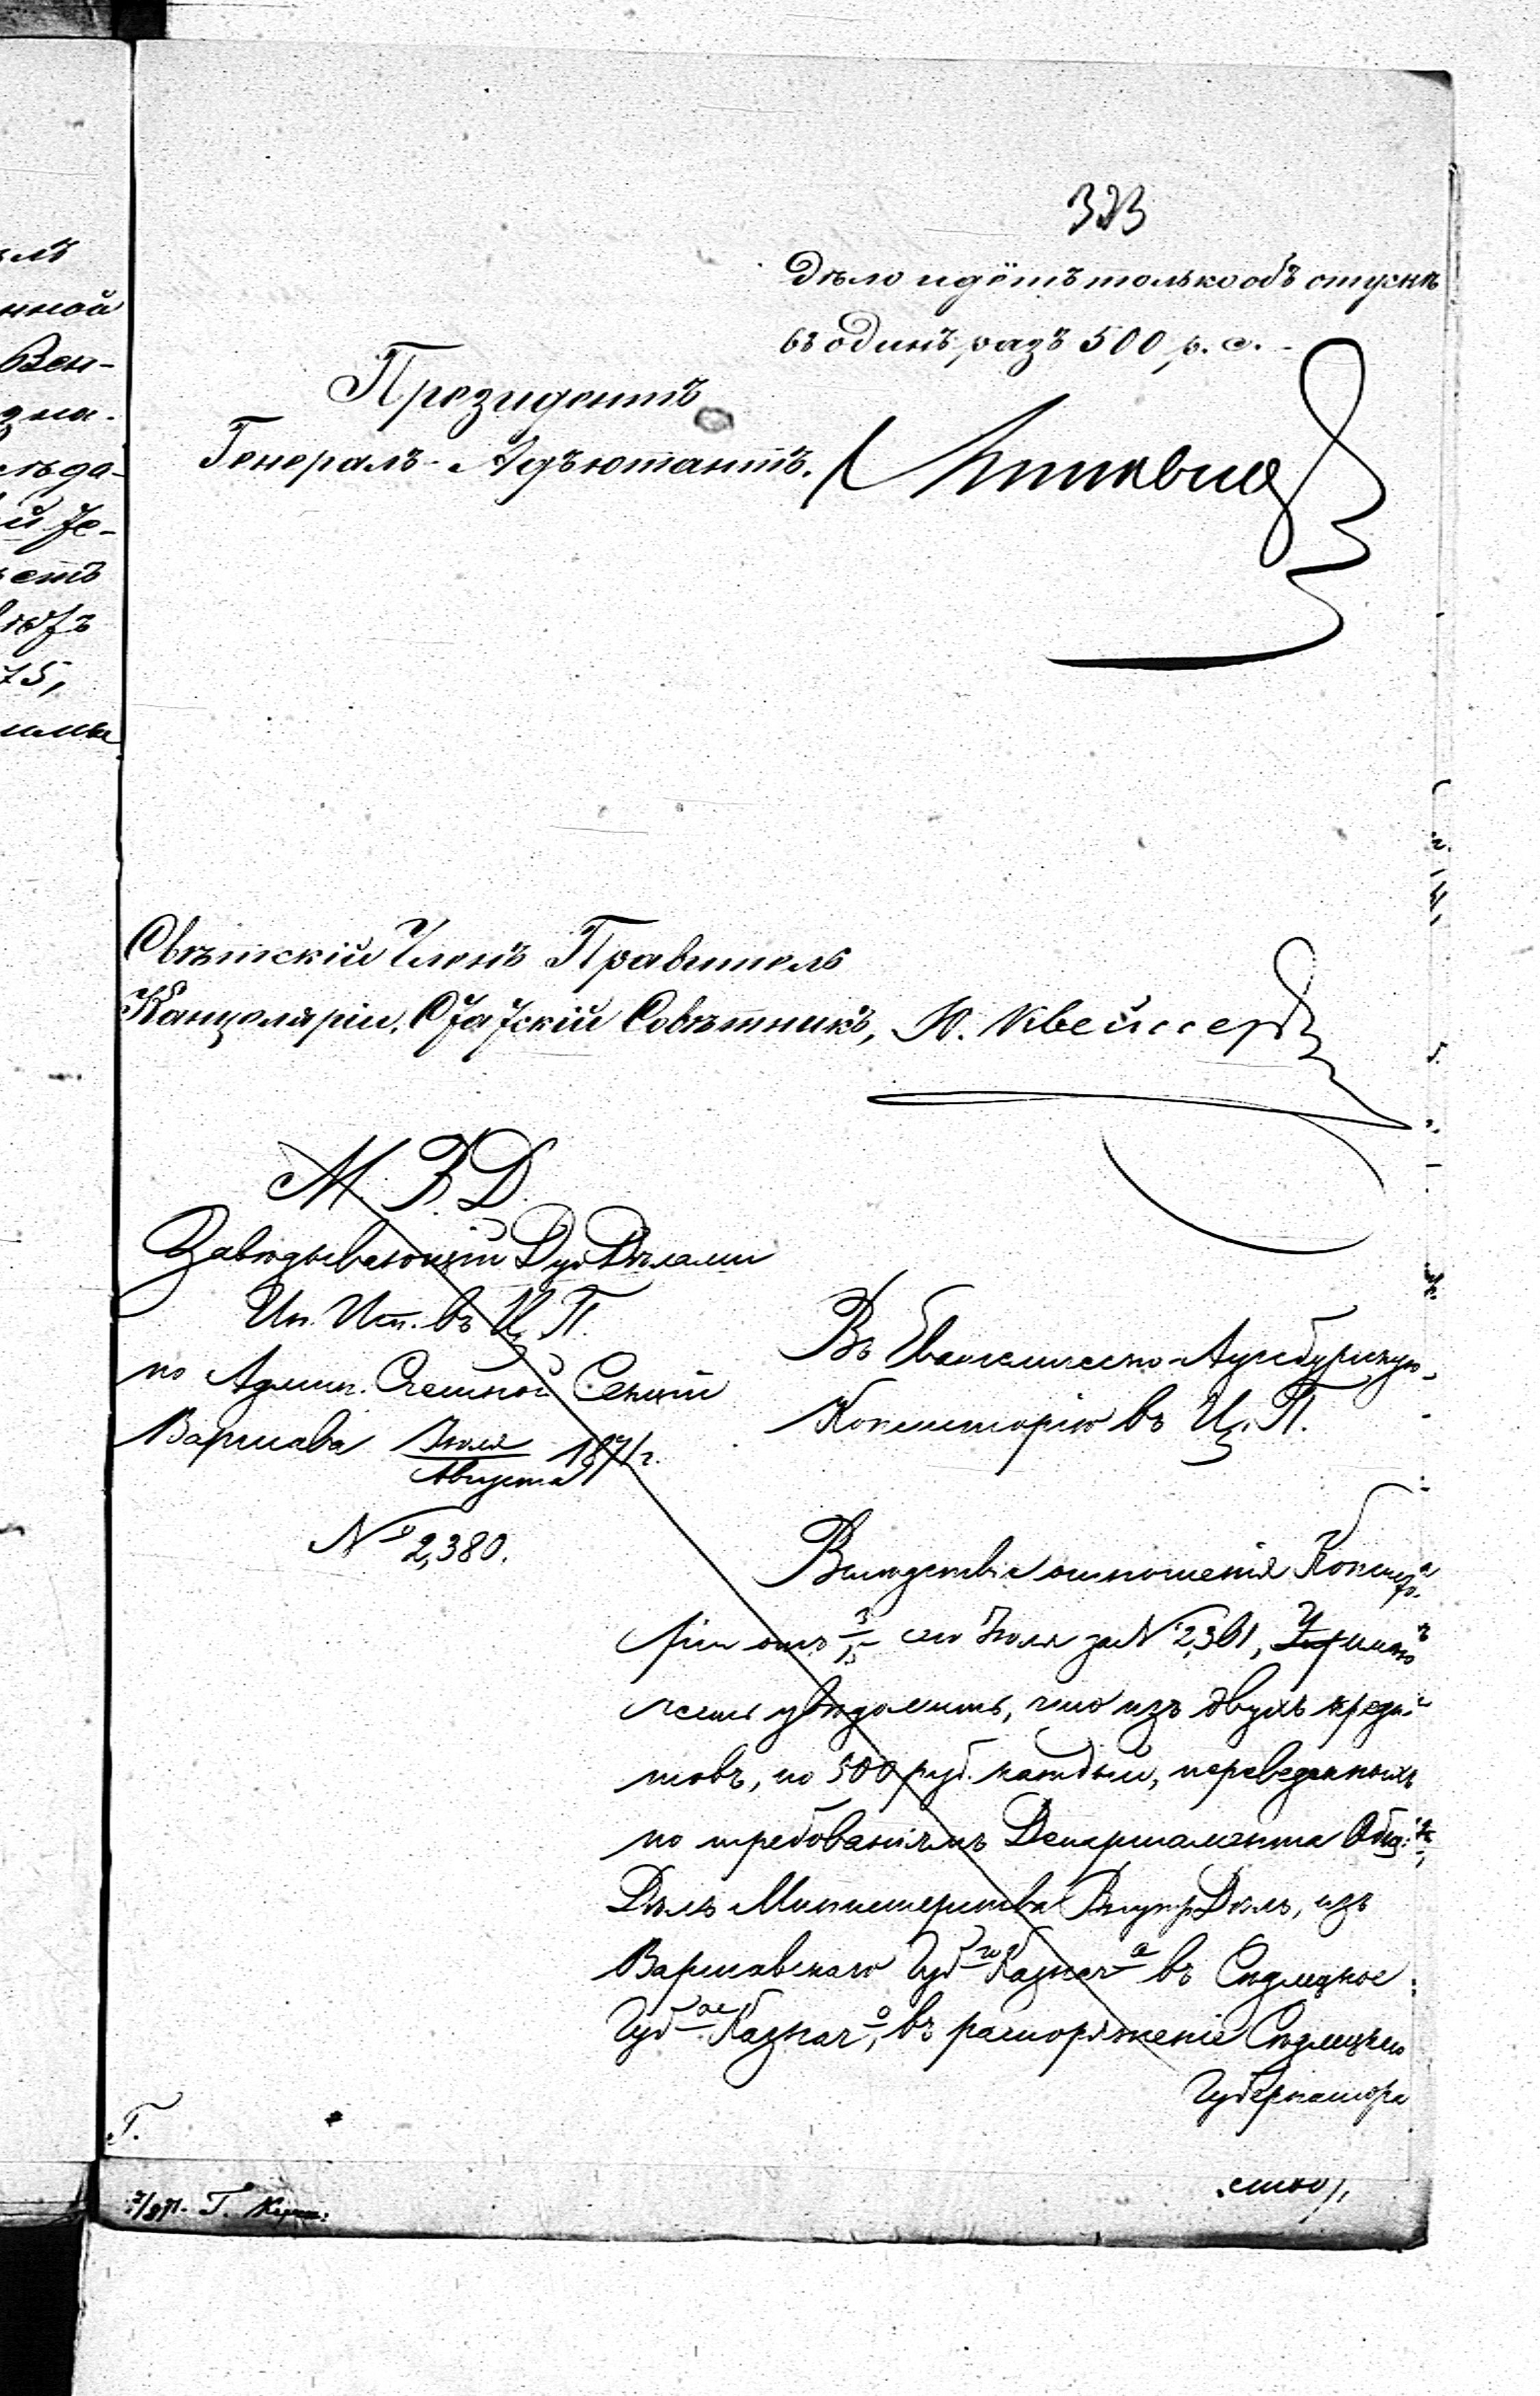 323
Дѣло идётъ только объ отпускѣ
въ одинъ разъ 500 р. с.
Президентъ
Генералъ-Адъютантъ.
Свѣтскій Членъ Правитель
Канцеляріи, Статскій Совѣтникъ, Ю. Квейссеръ
М. В. Д.
Завѣдывающій Дух Дѣлами
Ин. Исп. въ Ц. П.
по Админ. Счетной Секціи
Варшава Іюля 1871 г.
Августа
№ 2,380.
Въ Евангелическо-Аугсбургскую
Консисторію въ Ц. П.
Вслѣдствіе отношенія Консисто
ріи отъ 3/15 сего Іюля за № 2,361,
честь увѣдомить, что изъ двухъ креди
товъ, по 500 руб. каждый, переведенныхъ
по требованіямъ Департамента Общ:
Дѣлъ Министерства Внутр Дѣлъ, изъ
Варшавскаго Губ го Казнач а въ Сѣдлецкое
Губ ое Казнач о, въ распоряженіе Сѣдлецкаго
Губернатора
Г.
Г.